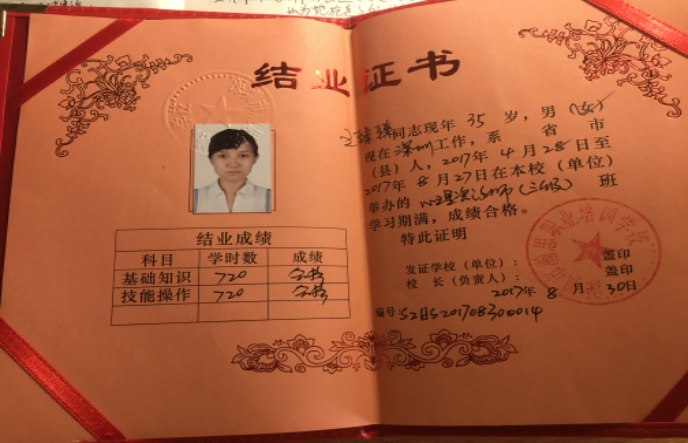 结业证书
同志现年 35 岁，男（女）
现在深圳工作，系 省 市
（县）人，2017年 4月28日至
2017年 8月27日在本校（单位）
举办的 心理咨询师（三级） 班
学习期满，成绩合格。
特此证明
发证学校（单位）： 盖印
校 长（负责人）： 盖印
2017年 8 月 30日
编号 SZHS201708300014
结业成绩
科目 学时数 成绩
基础知识 720 合格
技能操作 720 合格
职业培训学校